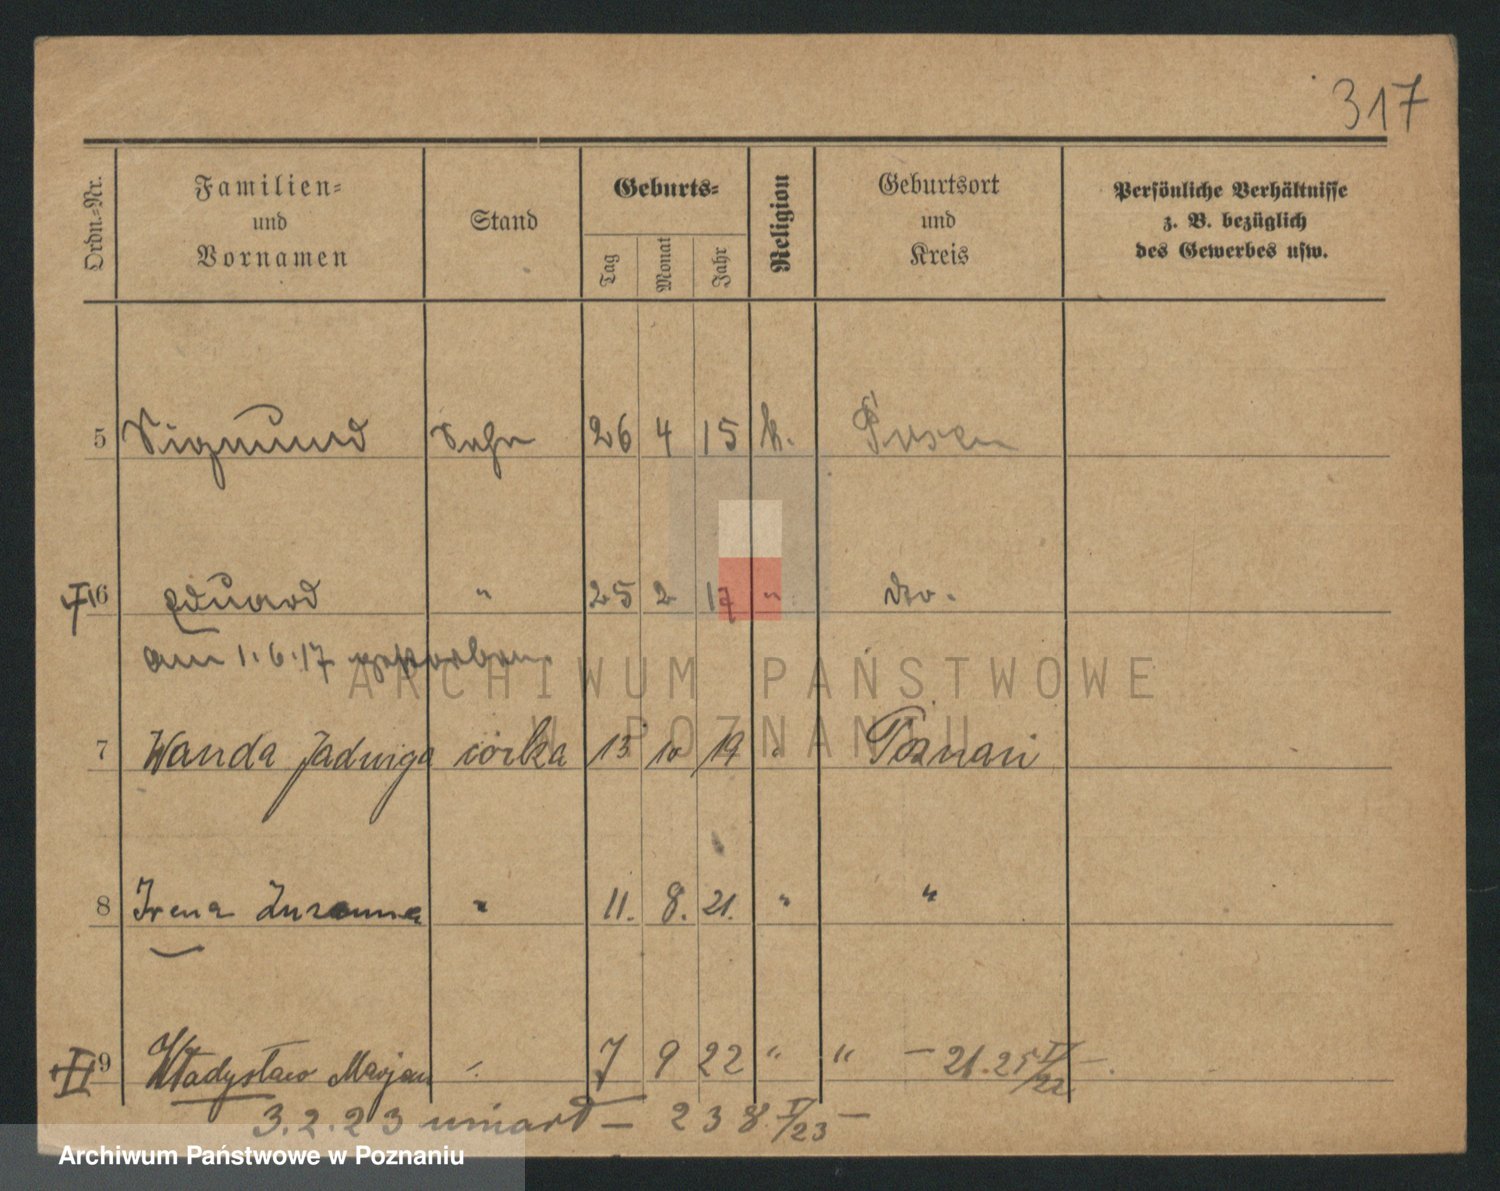 317
Ordn.-Nr.
Familien-
und
Vornamen
Stand
Geburts-
Tag
Monat
Jahr
Religion
Geburtsort
und
Kreis
Persönliche Verhältnisse
z. B. bezüglich
des Gewerbes usw.
5 Sigmund Sohn 26 4 15 k. Posen
6 Eduard " 25 2 17 " do.
am 1.6.17 gestorben
ARCHIWUM PAŃSTWOWE
W POZNANIU
7 Wanda Jadwiga córka 13 10 19 " Poznań
8 Irena Zuzanna " 11. 8. 21. " "
9 Władysław Marjan " 7 9 22 " " – 21.25 I/22 –
3.2.23 umarł – 238 I/23 –
Archiwum Państwowe w Poznaniu